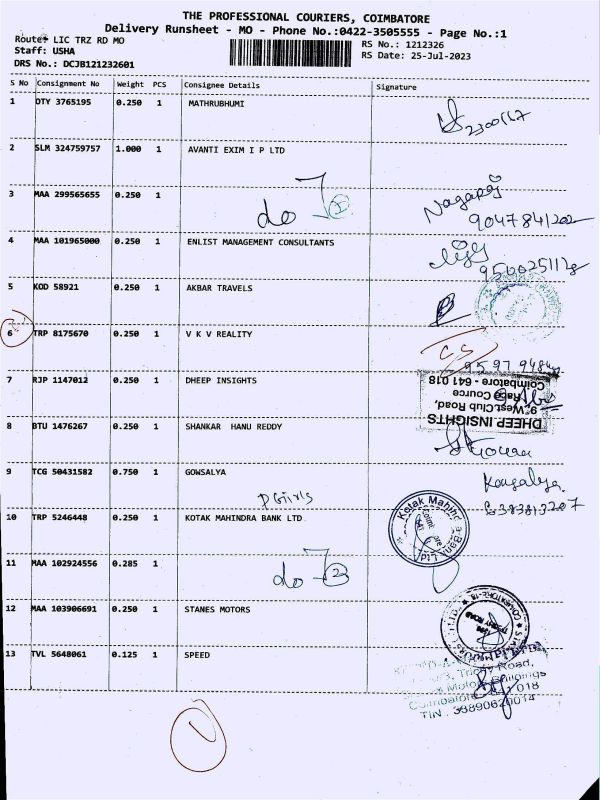 THE PROFESSIONAL COURIERS, COIMBATORE
Delivery Runsheet - MO - Phone No.:0422-3505555 - Page No.:1
Route: LIC TRZ RD MO
Staff: USHA
DRS No.: DCJB121232601
RS No.: 1212326
RS Date: 25-Jul-2023
S No Consignment No Weight PCS Consignee Details Signature
1 OTY 3765195 0.250 1 MATHRUBHUMI
2 SLM 324759757 1.000 1 AVANTI EXIM I P LTD
3 MAA 299565655 0.250 1
do
Nagaraj
9047841202
4 MAA 101965000 0.250 1 ENLIST MANAGEMENT CONSULTANTS
5 KOD 58921 0.250 1 AKBAR TRAVELS
6 TRP 8175670 0.250 1 V K V REALITY
7 RJP 1147012 0.250 1 DHEEP INSIGHTS
DHEEP INSIGHTS
9, West Club Road,
Race Cource
Coimbatore - 641 018
8 BTU 1476267 0.250 1 SHANKAR HANU REDDY
9 TCG 50431582 0.750 1 GOWSALYA
10 TRP 5246448 0.250 1 KOTAK MAHINDRA BANK LTD
Kotak Mahindra Bank Ltd
11 MAA 102924556 0.285 1
do
12 MAA 103906691 0.250 1 STANES MOTORS
13 TVL 5648061 0.125 1 SPEED
Road,
Coimbatore
TIN : 33890620014